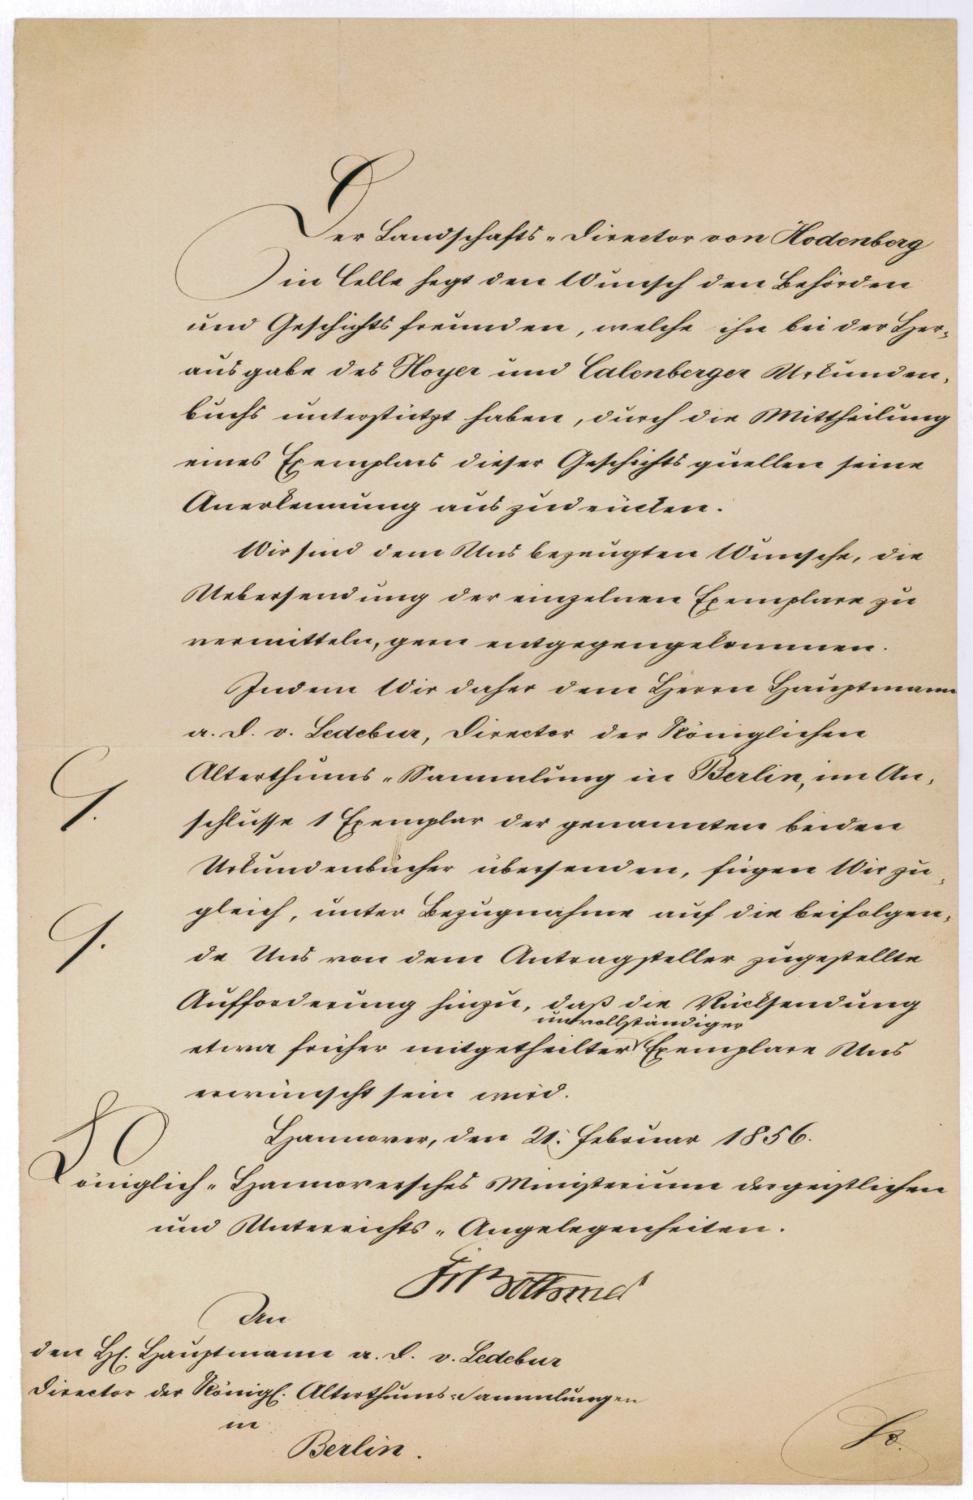 Der Landschafts-Director von Hodenberg
in Celle hegt den Wunsch den Behörden
und Geschichtsfreunden, welche ihn bei der Her-
ausgabe des Hoyer und Calenberger Urkunden-
buchs unterstützt haben, durch die Mittheilung
eines Exemplars dieser Geschichtsquellen seine
Anerkennung auszudrücken.
Wir sind dem Uns bezeugten Wunsche, die
Uebersendung der einzelnen Exemplare zu
vermitteln, gern entgegengekommen.
Indem Wir daher dem Herrn Hauptmann
a. D. v. Ledebur, Director der Königlichen
Alterthums-Sammlung in Berlin, im An-
schlusse 1 Exemplar der genannten beiden
Urkundenbücher übersenden, fügen Wir zu-
gleich, unter Bezugnahme auf die beifolgen-
de Uns von dem Antragsteller zugestellte
Aufforderung hinzu, daß die Rücksendung
unvollständiger
etwa früher mitgetheilter Exemplare Uns
erwünscht sein wird.
Hannover, den 21. Februar 1856.
Königlich-Hannoversches Ministerium der geistlichen
und Unterrichts-Angelegenheiten.
An
den H. Hauptmann a. D. v. Ledebur
Director der Königl. Alterthums-Sammlungen
in
Berlin.